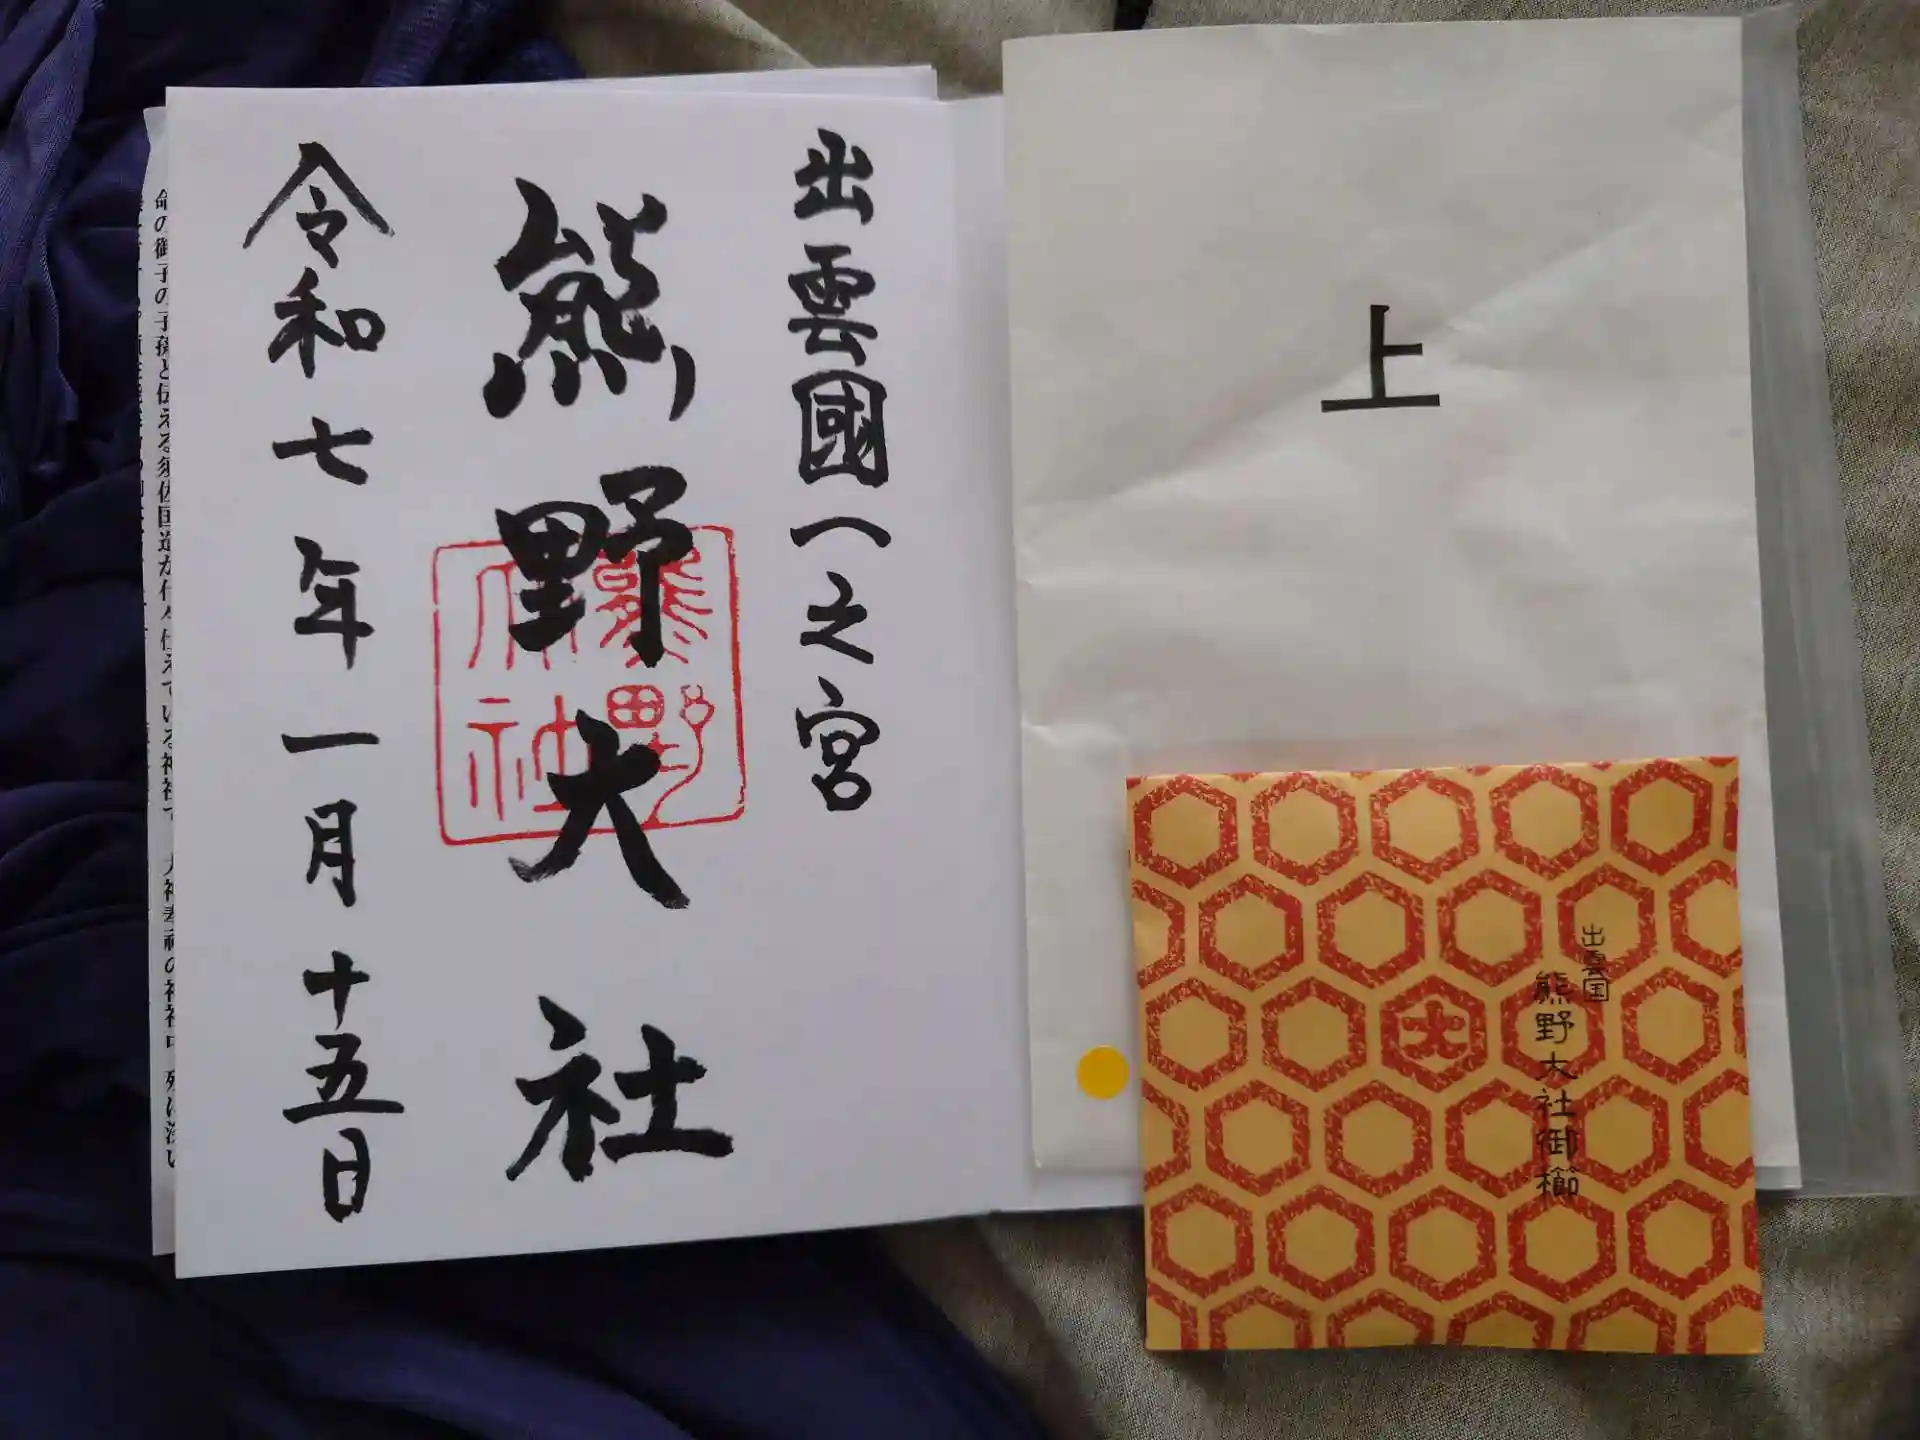 上
出雲国
熊野大社御櫛
大
出雲國一之宮
熊野大社
熊野大社
令和七年一月十五日
命の御子の子孫と伝える須佐国造が代々仕えている神社で